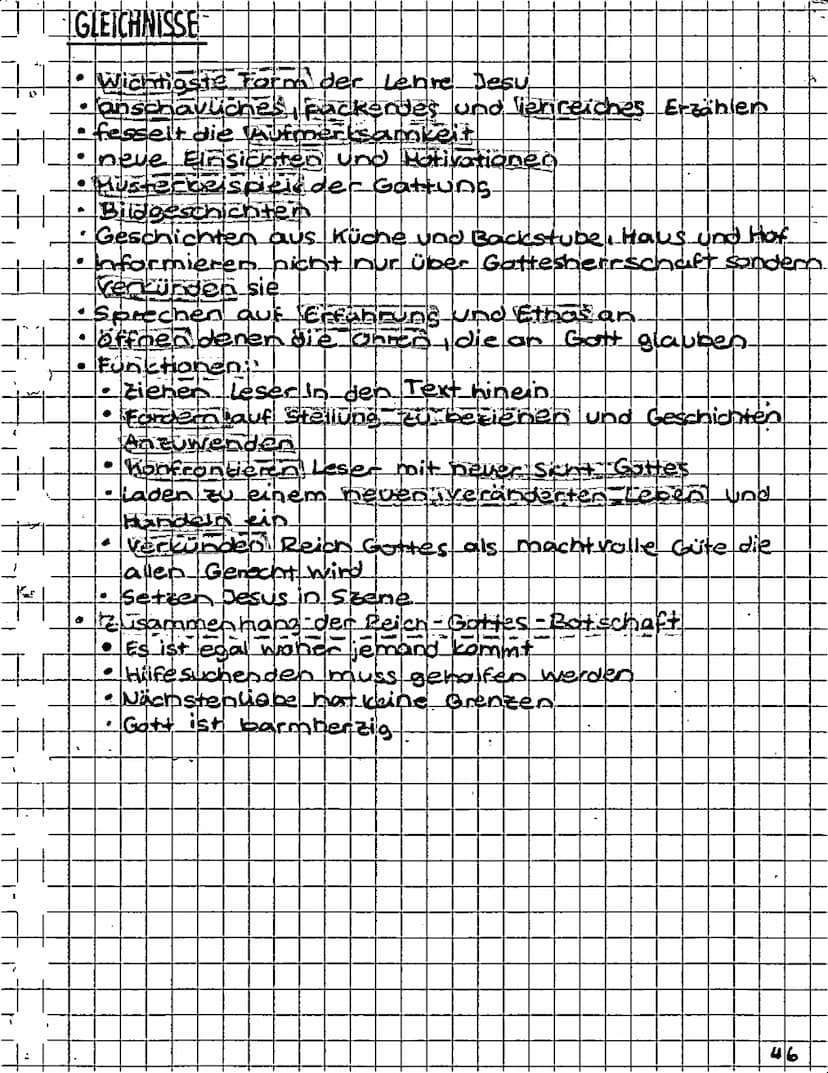 GLEICHNISSE
• Wichtigste Form der Lehre Jesu
• anschauliches, packendes und lehrreiches Erzählen
• fesselt die Aufmerksamkeit
• neue Einsichten und Motivationen
• Musterbeispiele der Gattung
• Bildgeschichten
• Geschichten aus Küche und Backstube, Haus und Hof
• Informieren nicht nur über Gottesherrschaft sondern
verkünden sie
• Sprechen auf Erfahrung und Ethos an
• öffnen denen die Ohren, die an Gott glauben
• Funktionen:
• Ziehen Leser in den Text hinein
• Fordern auf Stellung zu beziehen und Geschichten
Anzuwenden
• Konfrontieren Leser mit neuer Sicht Gottes
• Laden zu einem neuen, veränderten Leben und
Handeln ein
• Verkünden Reich Gottes als machtvolle Güte die
allen Gerecht wird
• Setzen Jesus in Szene
• Zusammenhang der Reich-Gottes-Botschaft
• Es ist egal woher jemand kommt
• Hilfesuchenden muss geholfen werden
• Nächstenliebe hat keine Grenzen
• Gott ist barmherzig
46